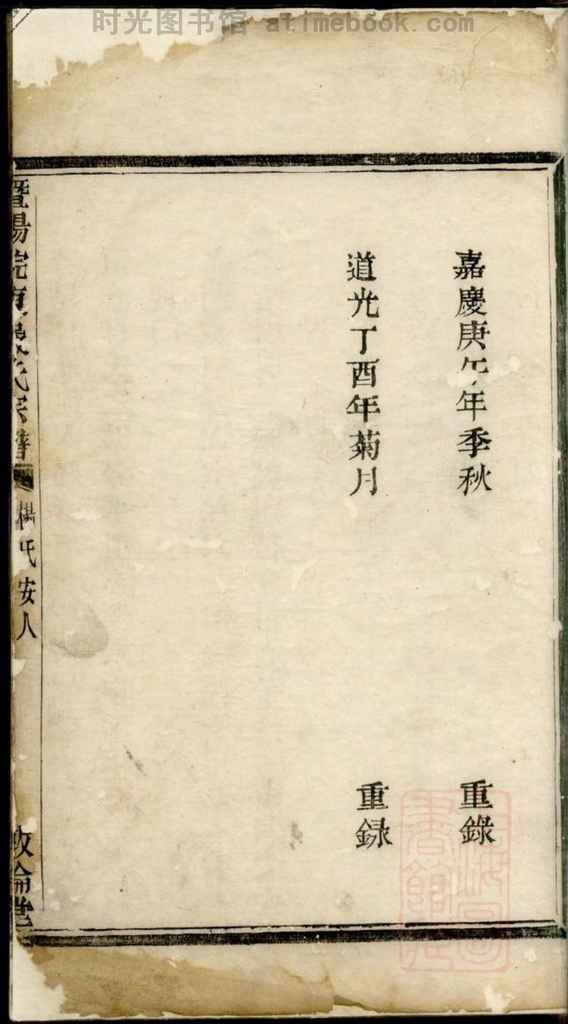 时光图书馆 atimebook.com
嘉慶庚午年季秋 重錄
道光丁酉年菊月 重録
暨陽 宗譜
楊氏安人
敘倫堂